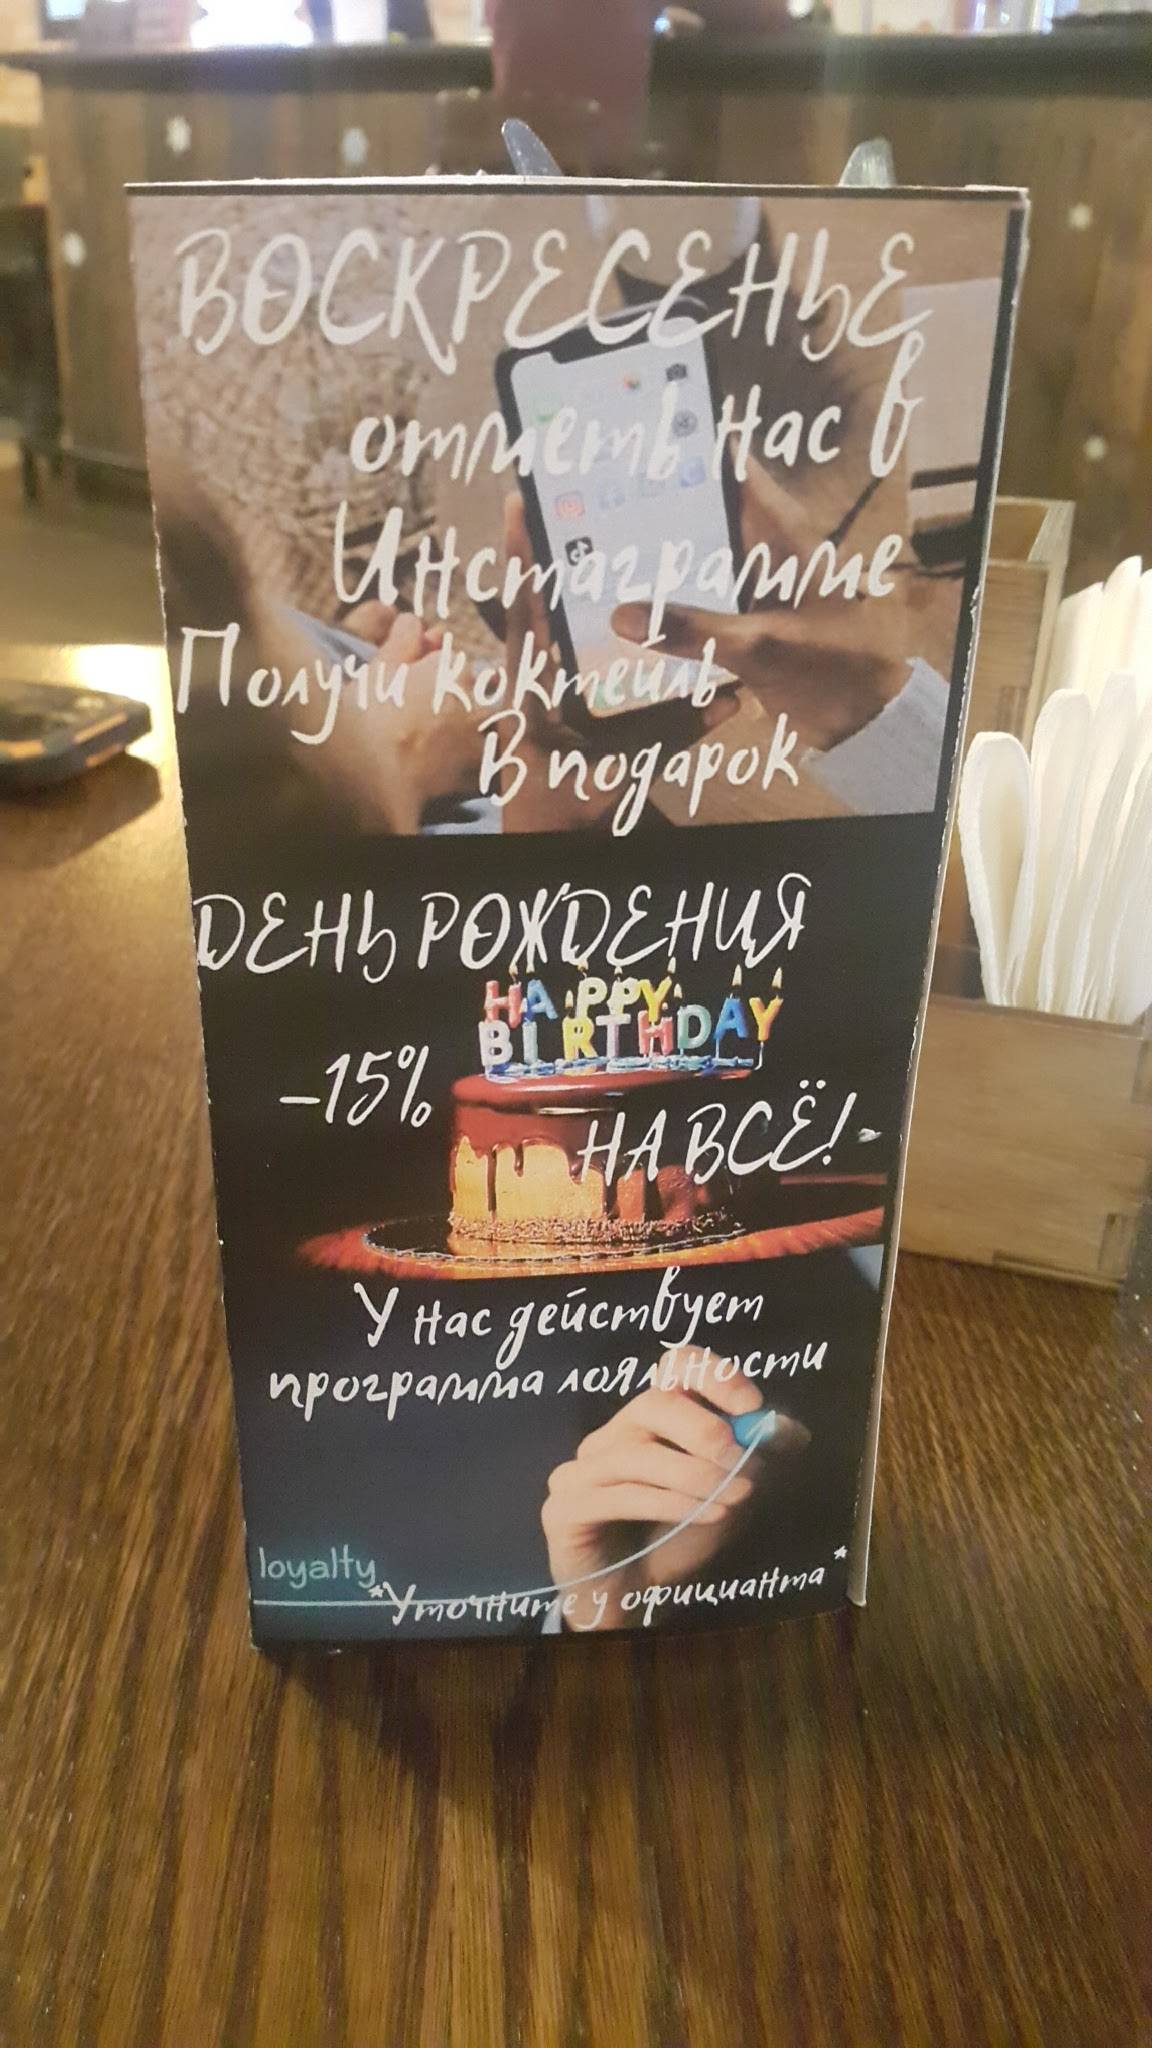 ВОСКРЕСЕНЬЕ
отметь нас в
Инстаграмме
Получи коктейль
В подарок
ДЕНЬ РОЖДЕНИЯ
HAPPY
BIRTHDAY
-15%
НА ВСЁ!
У нас действует
программа лояльности
loyalty
*Уточните у официанта*